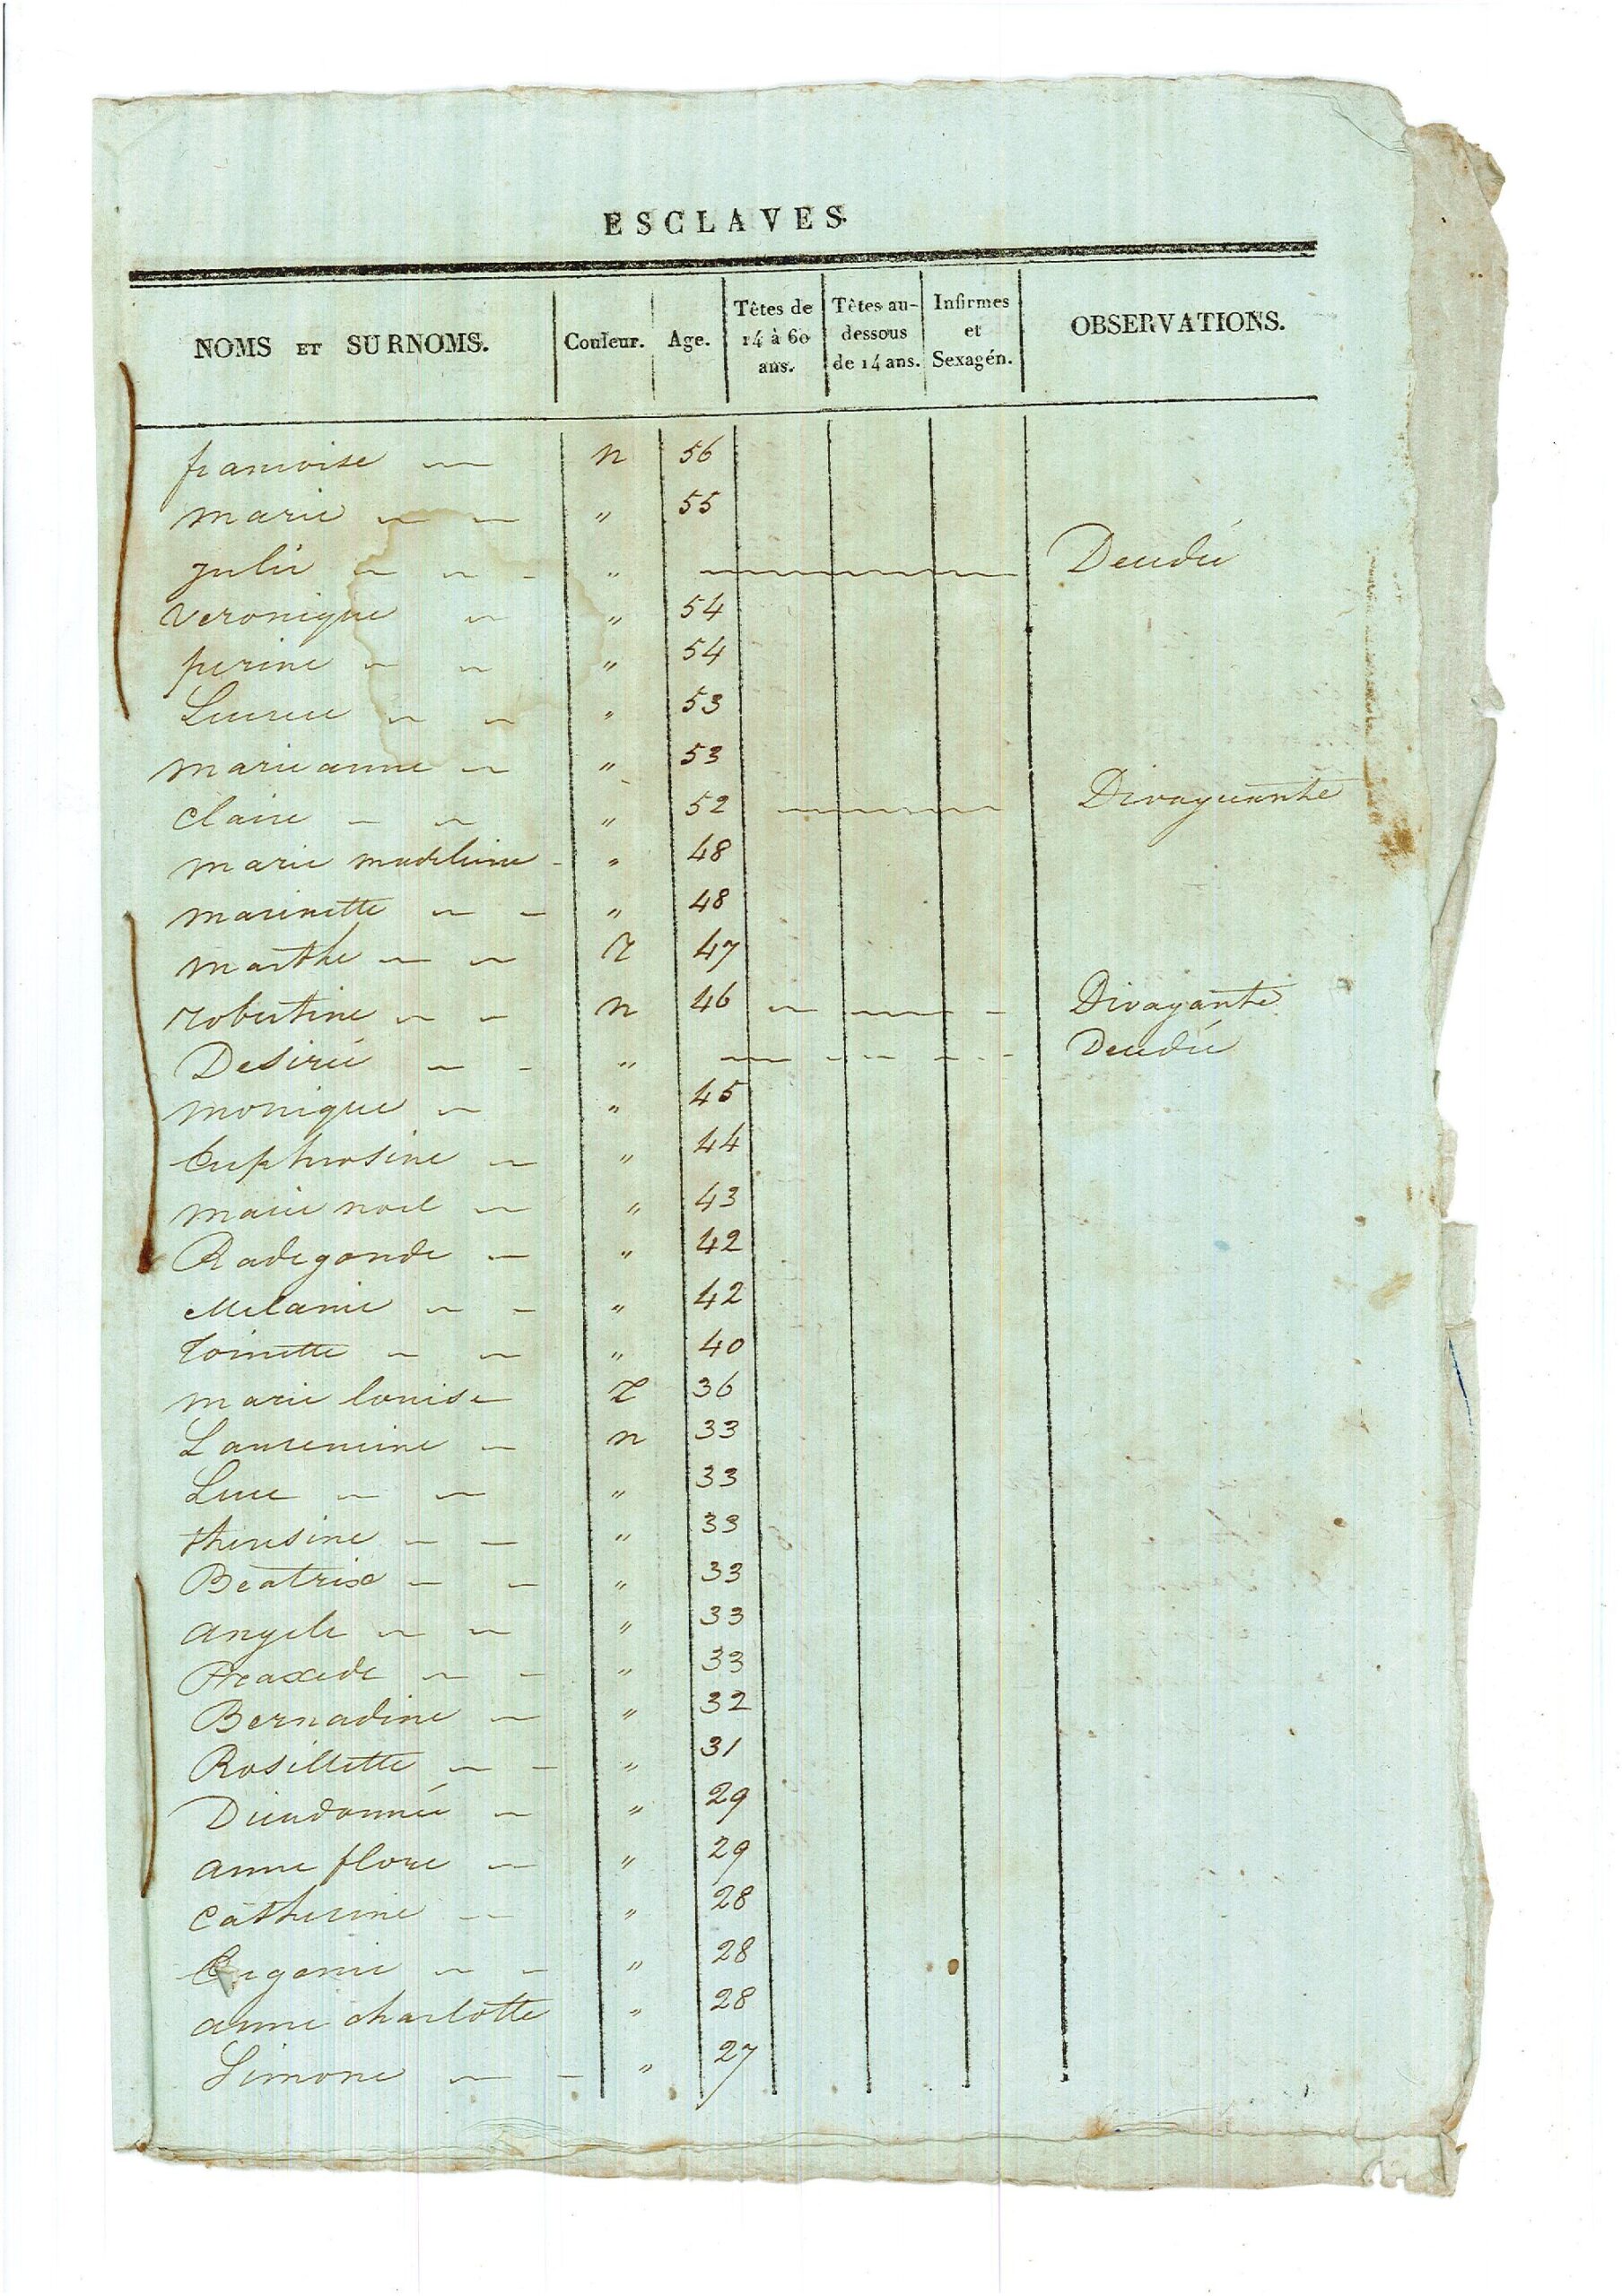 ESCLAVES.
NOMS ET SURNOMS. Couleur. Age. Têtes de 14 à 60 ans. Têtes au-dessous de 14 ans. Infirmes et Sexagén. OBSERVATIONS.
francoise n 56
marie " 55
Julie " Décédée
Veronique " 54
perine " 54
Lucrece " 53
marie anne " 53
Claire " 52 Divaguante
marie madeleine " 48
marinette " 48
marthe 47
robertine n 46 Divagante
Desirée " Décédée
monique " 45
Euphrosine " 44
marie noel " 43
Radegonde " 42
Melanie " 42
Toinette " 40
marie louise 36
Laurencine n 33
Luce " 33
theresine " 33
Beatrix " 33
angele " 33
Praxede " 33
Bernadine " 32
Rosillette " 31
Dieudonnée " 29
anne flore " 29
Catherine " 28
" 28
anne charlotte " 28
Simone " 27